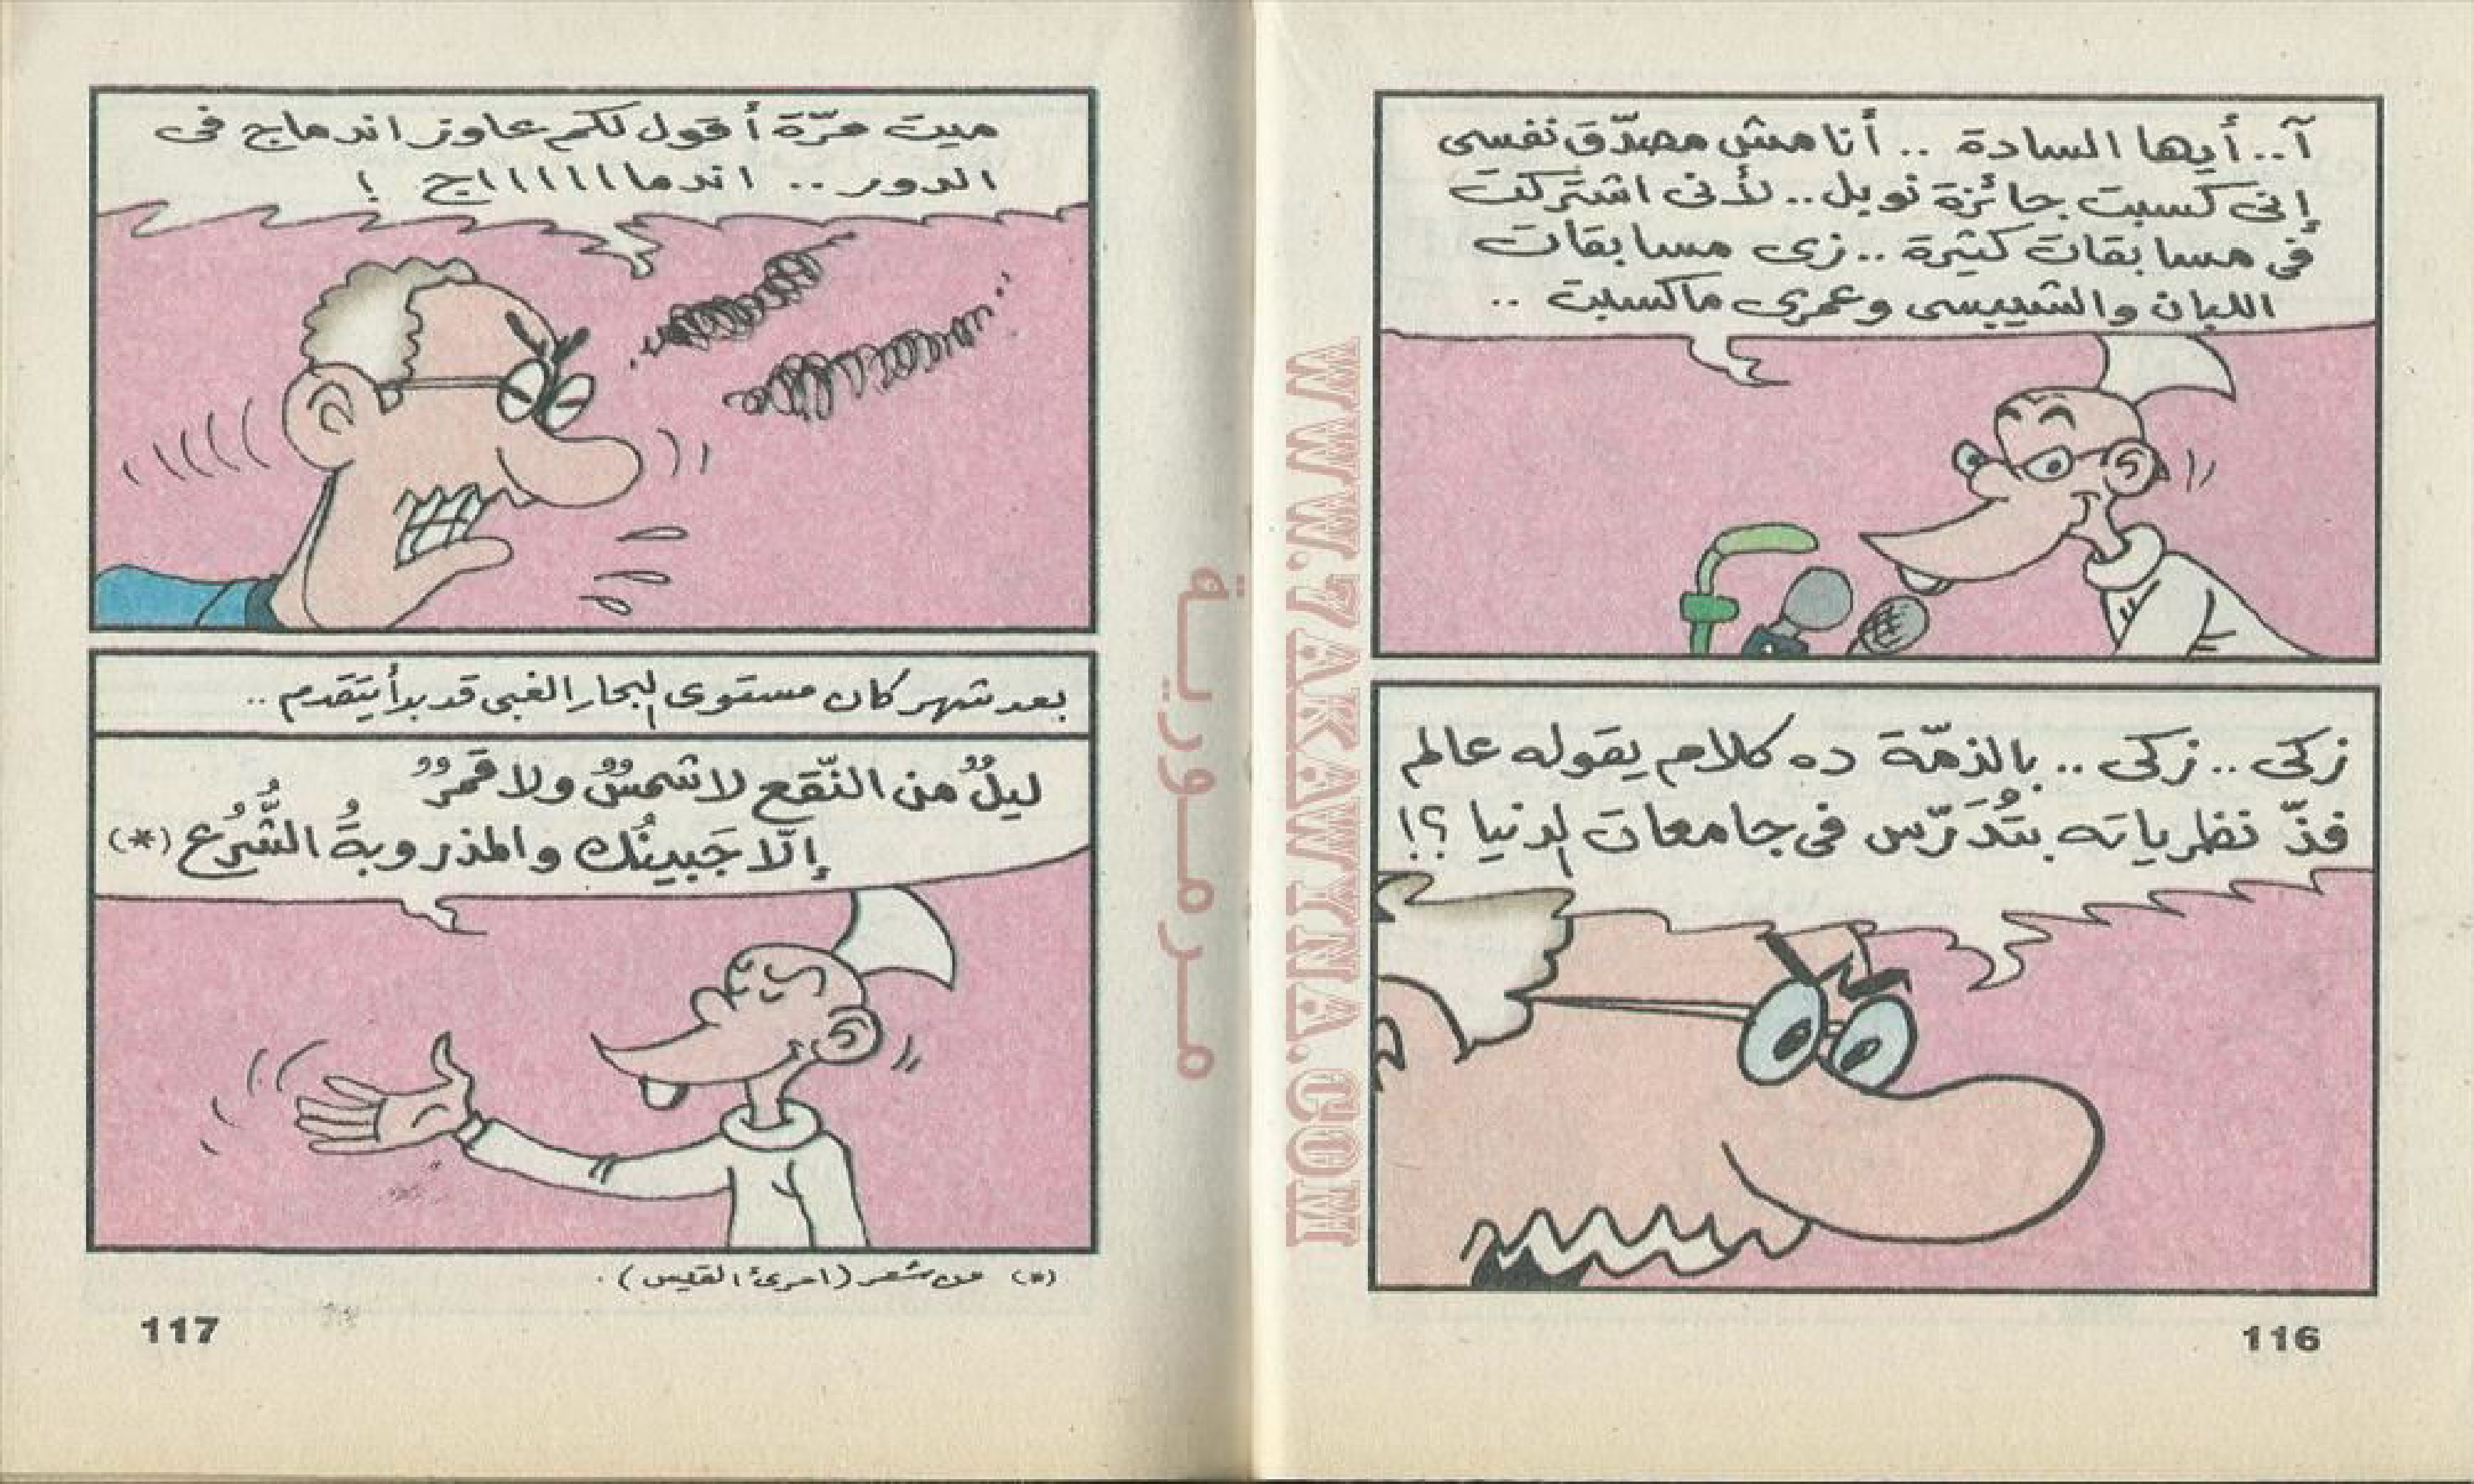 آ.. أيها السادة .. أنا مش مصدّق نفسى
إنى كسبت جائزة نوبل.. لأنى اشتركت
فى مسابقات كثيرة .. زى مسابقات
اللبان والشيبسى وعمرى ماكسبت ..
زكى .. زكى .. بالذمّة ده كلام يقوله عالم
فذّ نظرياته بتُدَرّس فى جامعات الدنيا ؟!
116
ميت مرّة أقول لكم عاوز اندماج فى
الدور .. اندماااااااج !
بعد شهر كان مستوى البحار الغبى قد بدأ يتقدم ..
ليلٌ من النّقع لا شمسٌ ولا قمرٌ
إلّا جَبينُك والمذروبةُ الشُّرُع (*)
(*) من شعر (امرئ القيس) .
117
WWW.7AKAWYNA.COM
مـرمـوريـة